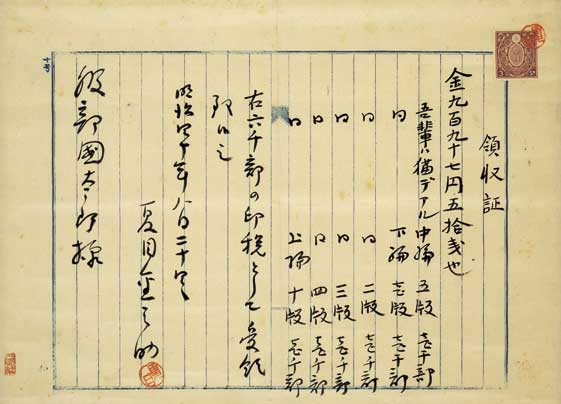 領収証
金九百九十七円五拾弐也
吾輩ハ猫デアル 中編 五版 壱千部
同 下編 壱版 壱千部
同 同 二版 壱千部
同 同 三版 壱千部
同 同 四版 壱千部
同 上編 十版 壱千部
右六千部の印税として受領
致候也
明治四十年八月二十
夏目金之助
服部國太郎様
十号